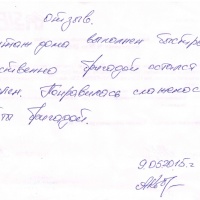 отзыв.
монтаж дома выполнен быстро
ственно бригадой остался
ен. Понравилась слаженность
ты бригадой.
9.05.2015 г